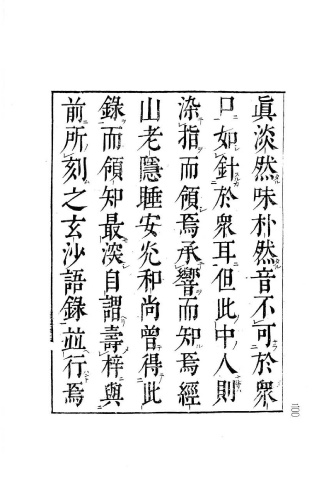 眞淡然味朴然音不可於衆
口如針於衆耳但此中人則
染指而領焉承響而知焉經
山老隱睡安兊和尚曾得此
錄而領知最深自謂壽梓與
前所刻之玄沙語錄並行焉